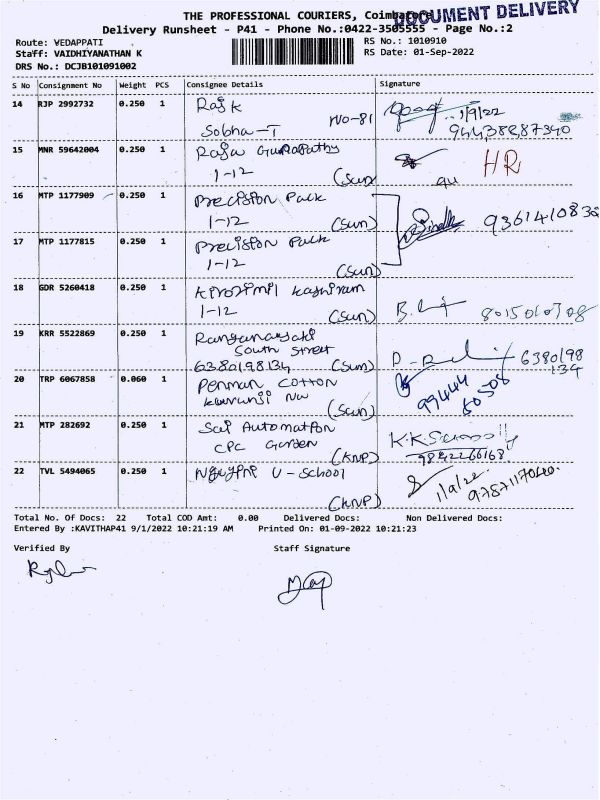 THE PROFESSIONAL COURIERS, Coimbatore
DOCUMENT DELIVERY
Delivery Runsheet - P41 - Phone No.:0422-3505555 - Page No.:2
Route: VEDAPPATI
RS No.: 1010910
Staff: VAIDHIYANATHAN K
RS Date: 01-Sep-2022
DRS No.: DCJB101091002
S No Consignment No Weight PCS Consignee Details Signature
14 RJP 2992732 0.250 1 Raj k
Sobha-T NO-81 1/9/22
15 MNR 59642004 0.250 1 Raja Gurupathy
1-12 (Sun) HR
16 MTP 1177909 0.250 1 Precision Pack
1-12 (Sun) 9361410838
17 MTP 1177815 0.250 1 Precision Pack
1-12 (Sun)
18 GDR 5260418 0.250 1
1-12 (Sun) 8015010708
19 KRR 5522869 0.250 1
South Street
6380198134 (Sun) 6380198
134
20 TRP 6067858 0.060 1 Penman Cotton
(Sun) 99444
80508
21 MTP 282692 0.250 1 Sai Automation
CPC Garden (KNP) 9842266168
22 TVL 5494065 0.250 1 U-School
(KNP) 1/9/22
Total No. Of Docs: 22 Total COD Amt: 0.00 Delivered Docs: Non Delivered Docs:
Entered By :KAVITHAP41 9/1/2022 10:21:19 AM Printed On: 01-09-2022 10:21:23
Verified By Staff Signature